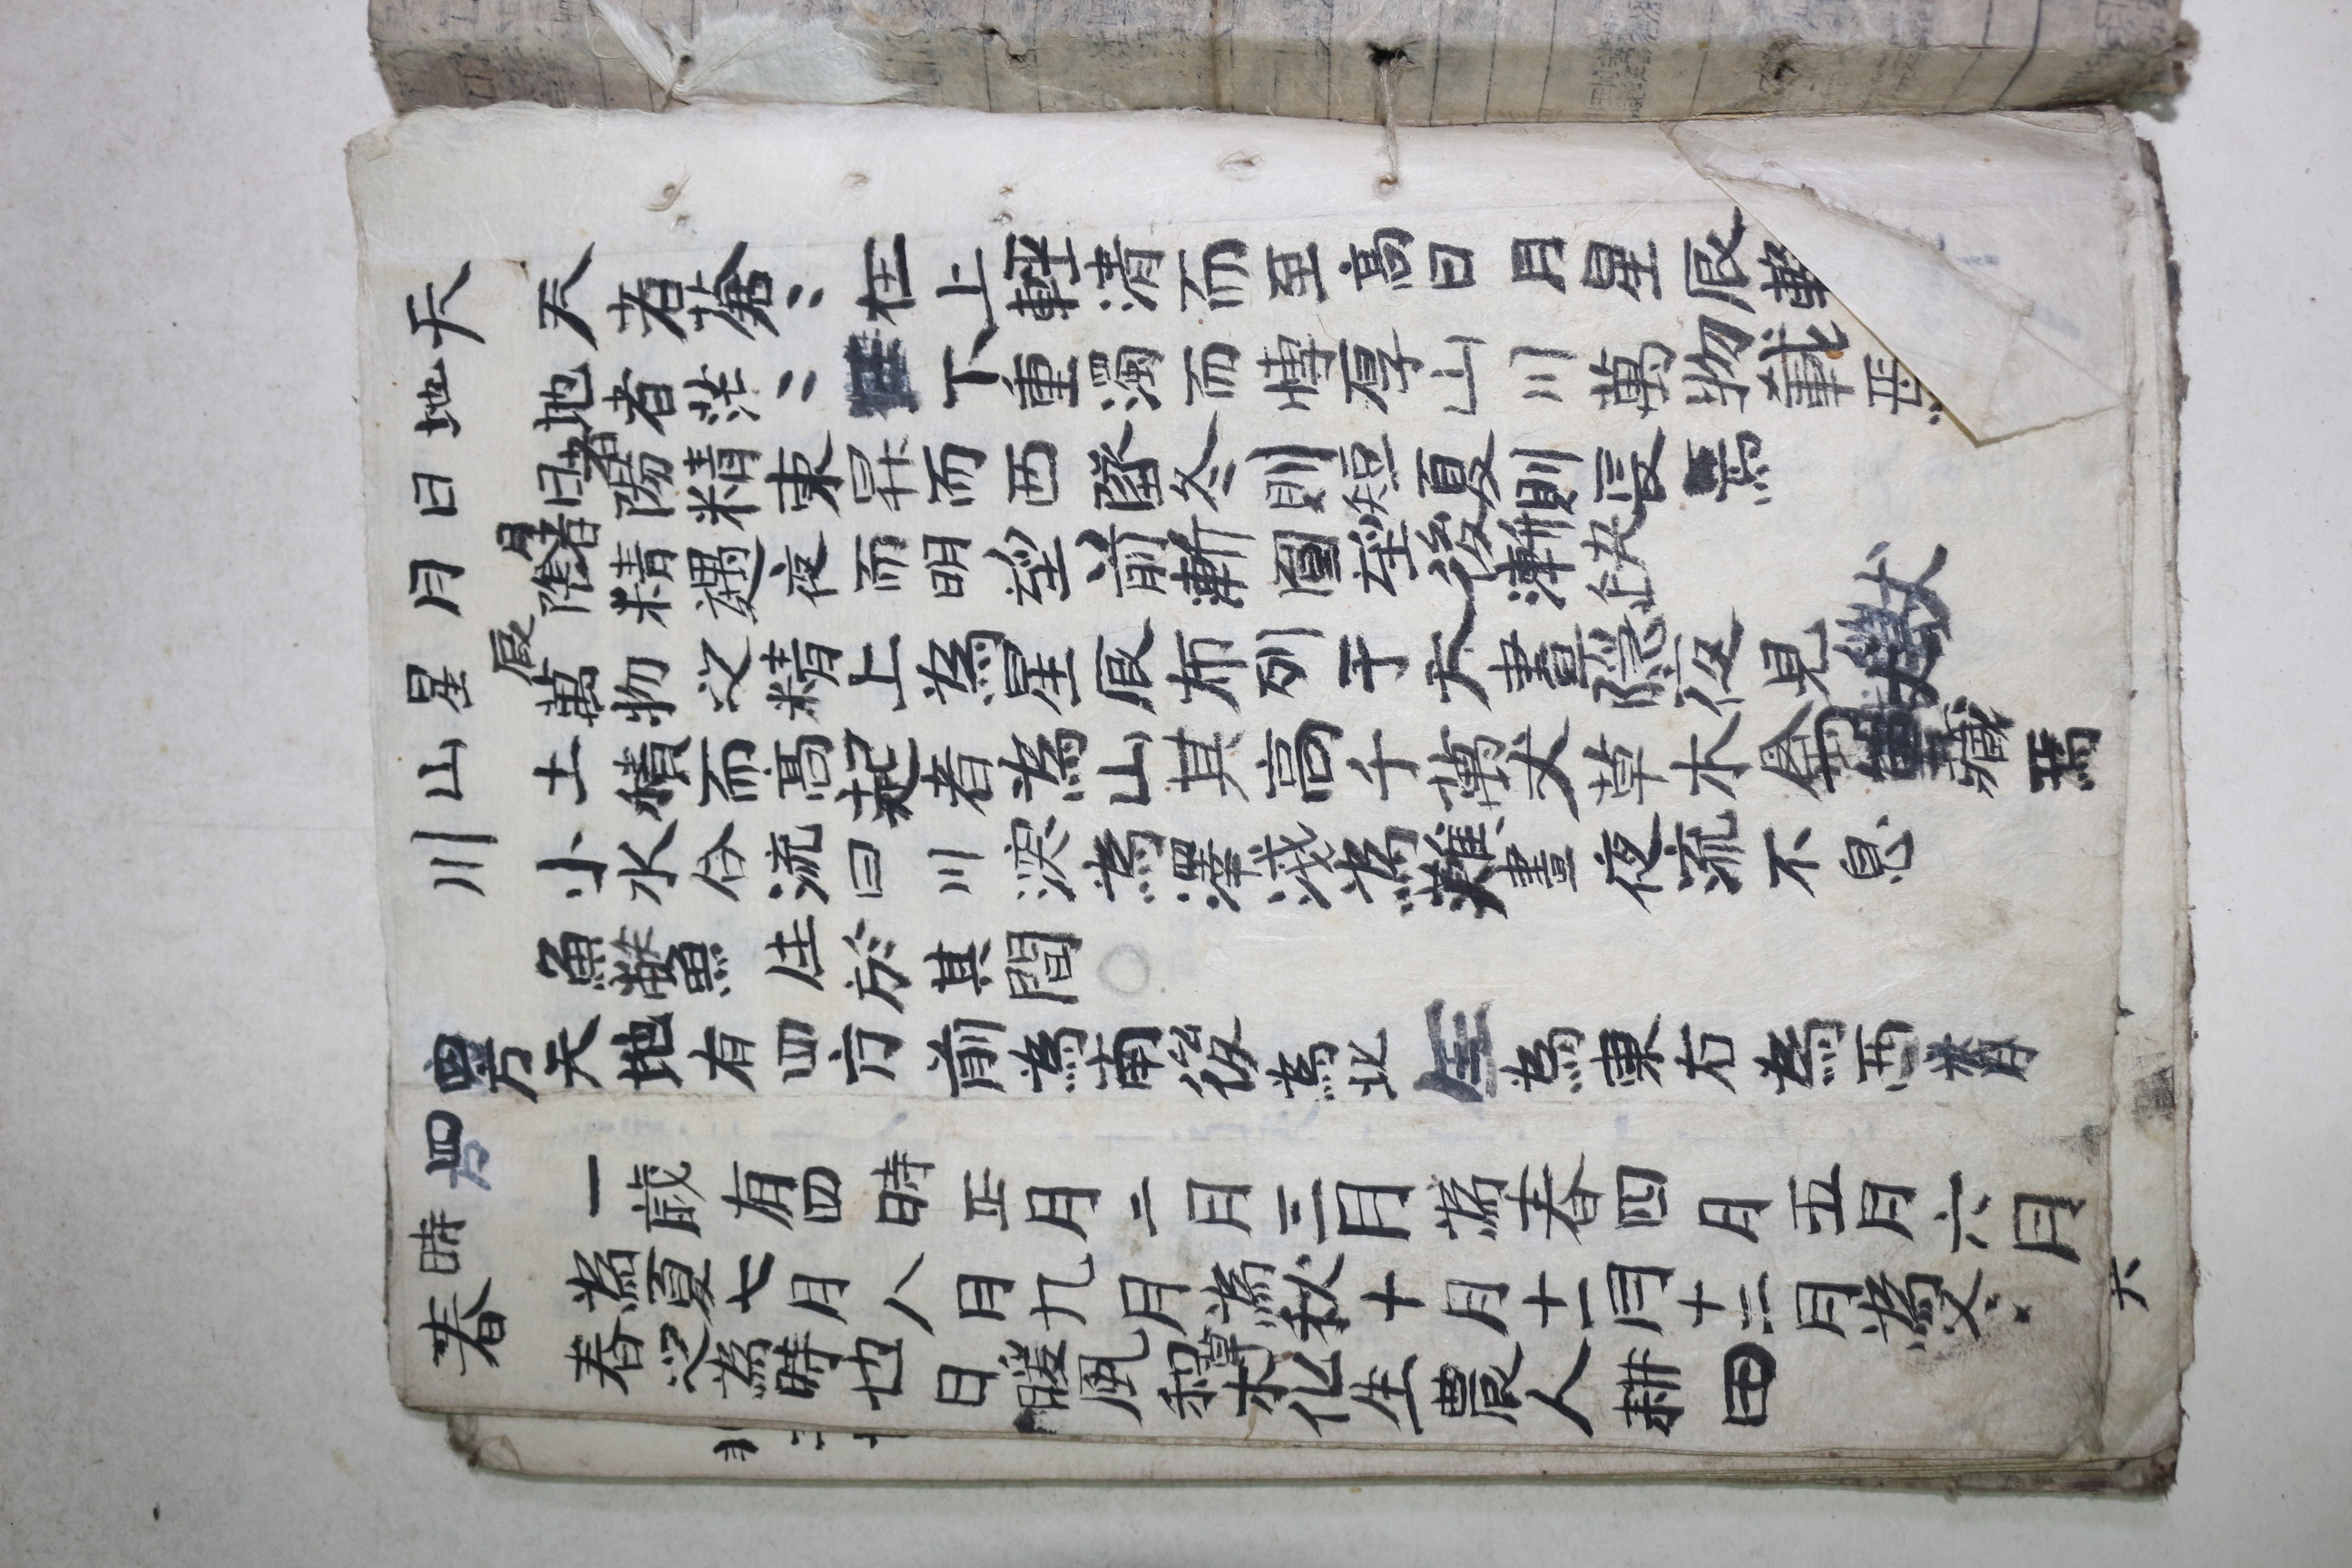 天 天者蒼〻在上輕清而至高日月星辰
地 地者茫〻下重濁而博厚山川萬物載焉
日 日者陽精東昇而西墜冬則短夏則長焉
月 月者陰精遇夜而明望前漸圓望後漸缺
星辰 萬物之精上為星辰布列于天晝隱夜見
山 土積而高起者為山其高千萬丈草木禽獸藏焉
川 小水合流曰川深為澤淺為灘晝夜流不息
魚鱉 生於其間
四方 天地有四方前為南後為北 為東右為西
四時 一歲有四時正月二月三月為春四月五月六月
為夏七月八月九月為秋十月十一月十二月為冬
春 春之為時也日暖風和草木化生農人耕田